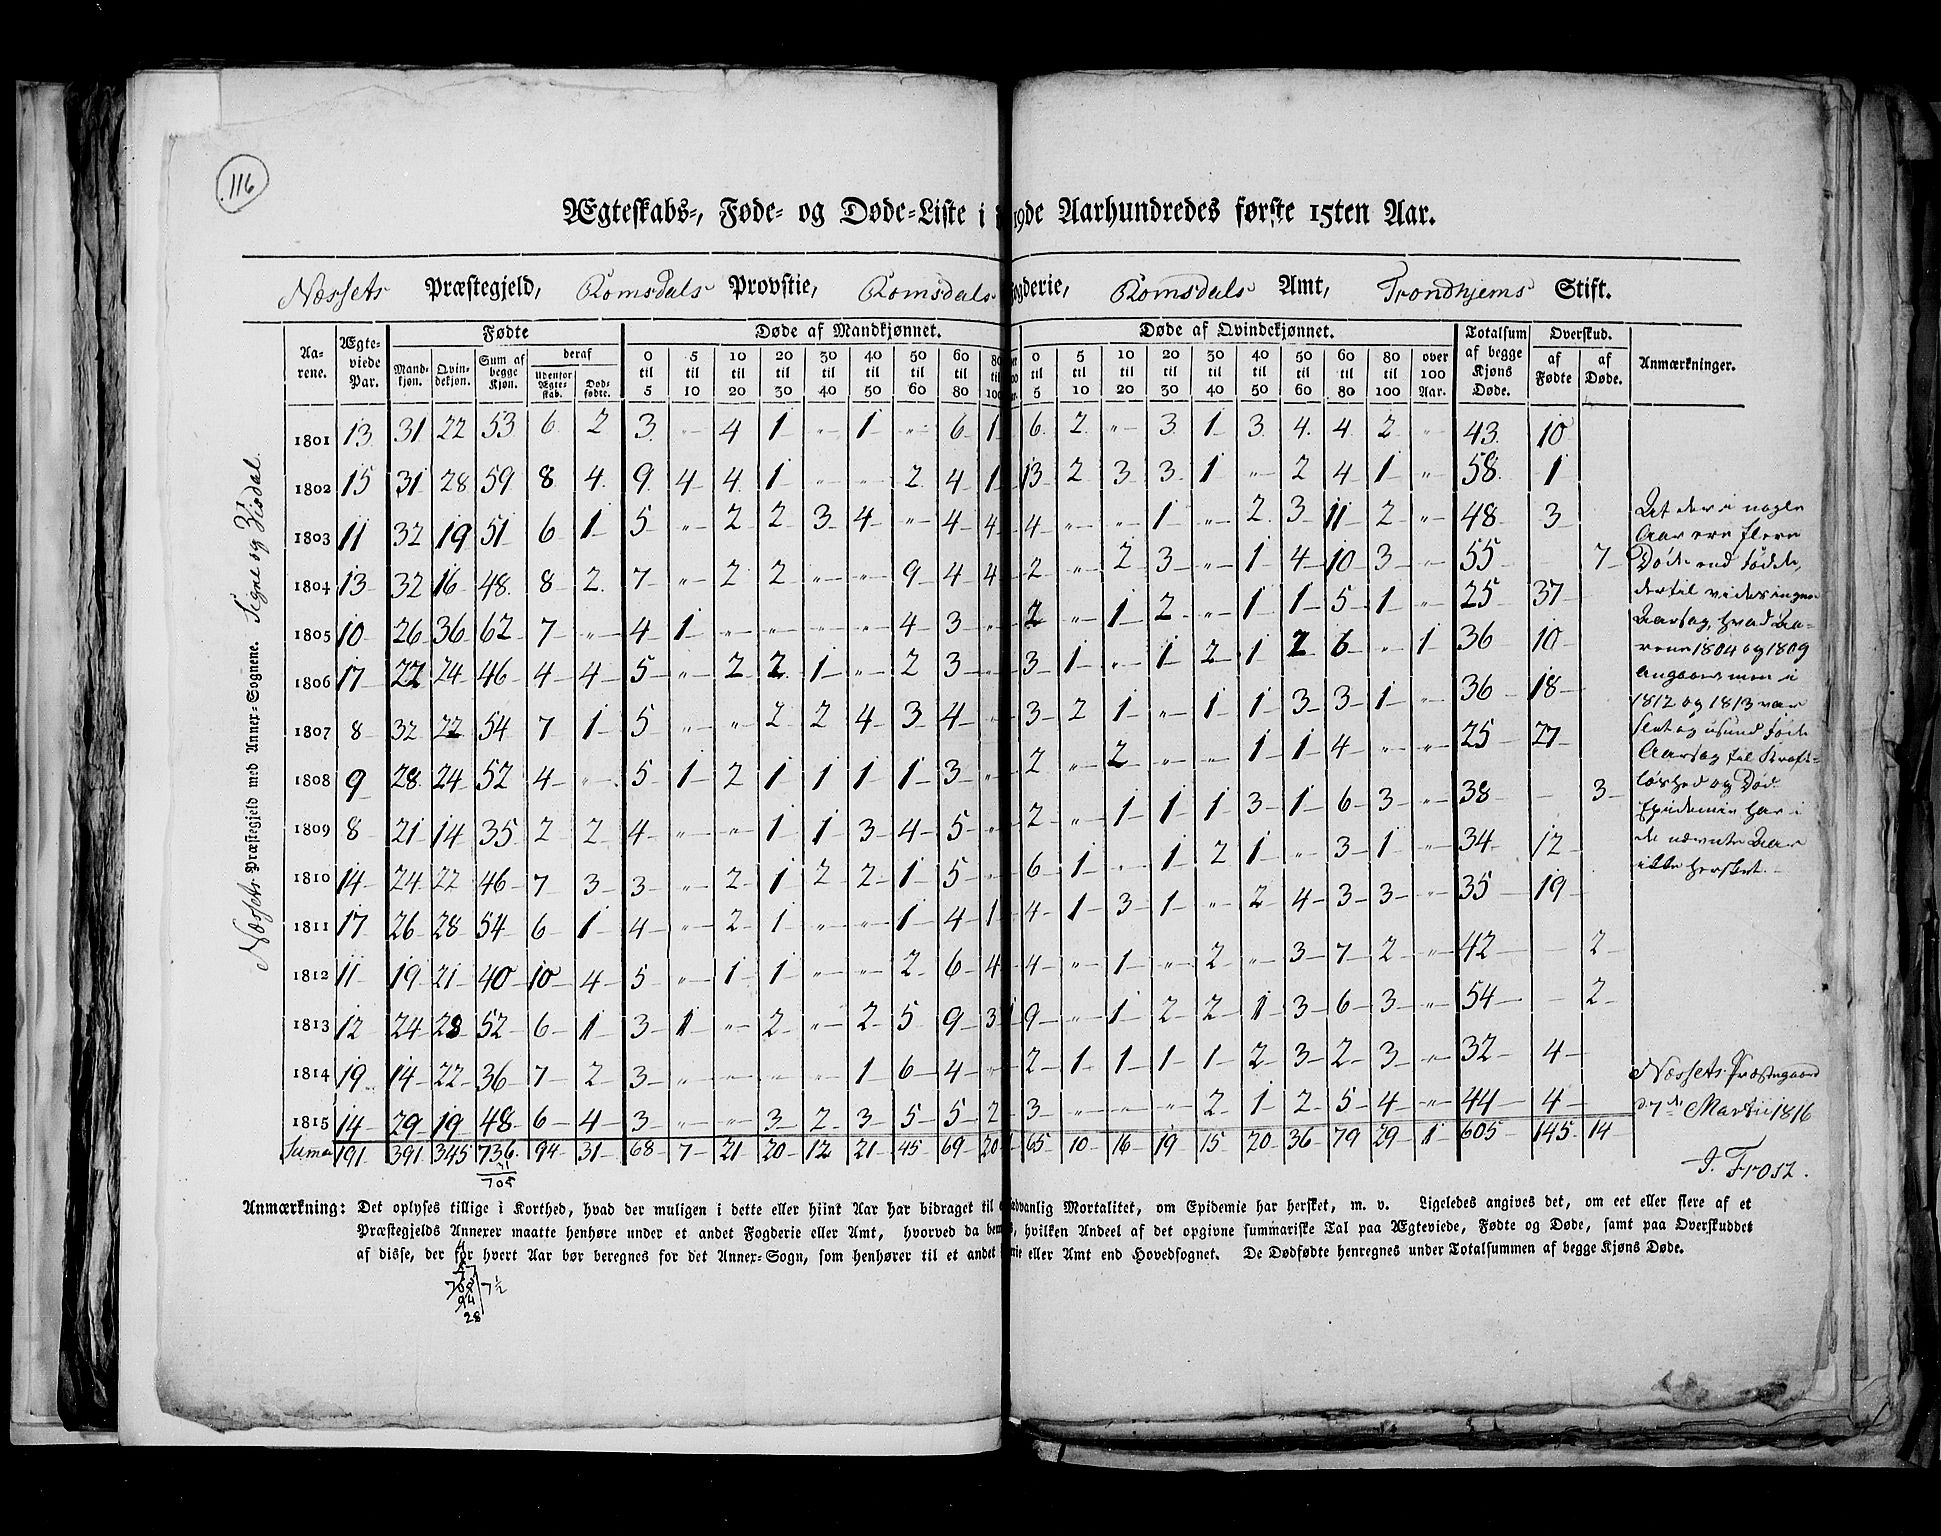 116
Ægteskabs-, Føde- og Døde-Liste i 19de Aarhundredes første 15ten Aar.
Næssets Præstegjeld, Romsdals Provstie, Romsdals Fogderie, Romsdals Amt, Trondhjems Stift.
Næssets Præstegjeld med Annex-Sognene. Signe og Visdal.
Aa-rene. Ægte-viede Par. Fødte Døde af Mandkjønnet. Døde af Qvindekjønnet. Totalsum af begge Kjøns Døde. Overskud. Anmærkninger.
Mand-kjøn. Qvin-dekjøn. Sum af begge Kjøn. deraf udenfor Ægte-skab. Død-fødte. 0 til 5 5 til 10 10 til 20 20 til 30 30 til 40 40 til 50 50 til 60 60 til 80 80 til 100 0 til 5 5 til 10 10 til 20 20 til 30 30 til 40 40 til 50 50 til 60 60 til 80 80 til 100 over 100 Aar. af Fødte af Døde.
1801 13 31 22 53 6 2 3 " 4 1 " 1 " 6 1 6 2 " 3 1 3 4 4 2 " 43 10
1802 15 31 28 59 8 4 9 4 4 1 " " 2 4 1 13 2 3 3 1 " 2 4 1 " 58 1
1803 11 32 19 51 6 1 5 " 2 2 3 4 " 4 4 4 " " 1 " 2 3 11 2 " 48 3
1804 13 32 16 48 8 2 7 " 2 2 " " 9 4 4 2 " 2 3 " 1 4 10 3 " 55 - 7
1805 10 26 36 62 7 " 4 1 " " " " 4 3 " 2 " 1 2 " 1 1 5 1 " 25 37
1806 17 22 24 46 4 4 5 " 2 2 1 " 2 3 " 3 1 " 1 2 1 2 6 " 1 36 10
1807 8 32 22 54 7 1 5 " " 2 2 4 3 4 " 3 2 1 " 1 1 3 3 1 " 36 18
1808 9 28 24 52 4 " 5 1 2 1 1 1 1 3 " 2 " 2 " " 1 1 4 " " 25 27
1809 8 21 14 35 2 2 4 " " 1 1 3 4 5 " 2 " 1 1 1 3 1 6 3 " 38 - 3
1810 14 24 22 46 7 3 3 " 2 1 2 2 1 5 " 6 1 " 1 2 1 " 3 1 " 34 12
1811 17 26 28 54 6 1 4 " 2 1 " " 1 4 1 4 1 3 1 " 2 4 3 3 " 35 19
1812 11 19 21 40 10 4 5 " 1 1 " " 2 6 4 4 " 1 " 2 " 3 7 2 " 42 - 2
1813 12 24 28 52 6 1 3 1 " 2 " 2 5 9 3 1 9 " 1 2 2 1 3 6 3 " 54 - 2
1814 19 14 22 36 7 2 3 " " " " 1 6 4 " 2 1 1 1 1 2 3 2 3 " 32 4
1815 14 29 19 48 6 4 3 " " 3 2 3 5 5 2 3 " " " 2 1 2 5 4 " 44 4
Suma 191 391 345 736 94 31 68 7 21 20 12 21 45 69 20 1 65 10 16 19 15 20 36 79 29 1 605 145 14
31
705
At der i nogle
Aar ere flere
Døde end fødde,
dertil vides ingen
Aarsag, hvad Aa-
rene 1804 og 1809
angaaer men i
1812 og 1813 var
slet og usund føde
Aarsag til Kraft-
løshed og Død
Epidemie har i
de nævnte Aar
ikke hersket.
Næssets Præstegaard
d 7de Martii 1816
J. Frost.
Anmærkning: Det oplyses tillige i Korthed, hvad der muligen i dette eller hiint Aar har bidraget til ædvanlig Mortalitet, om Epidemie har hersket, m. v. Ligeledes angives det, om eet eller flere af et
Præstegjelds Annexer maatte henhøre under et andet Fogderie eller Amt, hvorved da bem s, hvilken Andeel af det opgivne summariske Tal paa Ægteviede, Fødte og Døde, samt paa Overskuddet
af disse, der for hvert Aar bør beregnes for det Annex-Sogn, som henhører til et andet erie eller Amt end Hovedsognet. De Dødfødte henregnes under Totalsummen af begge Kjøns Døde.
705 7½
94
28